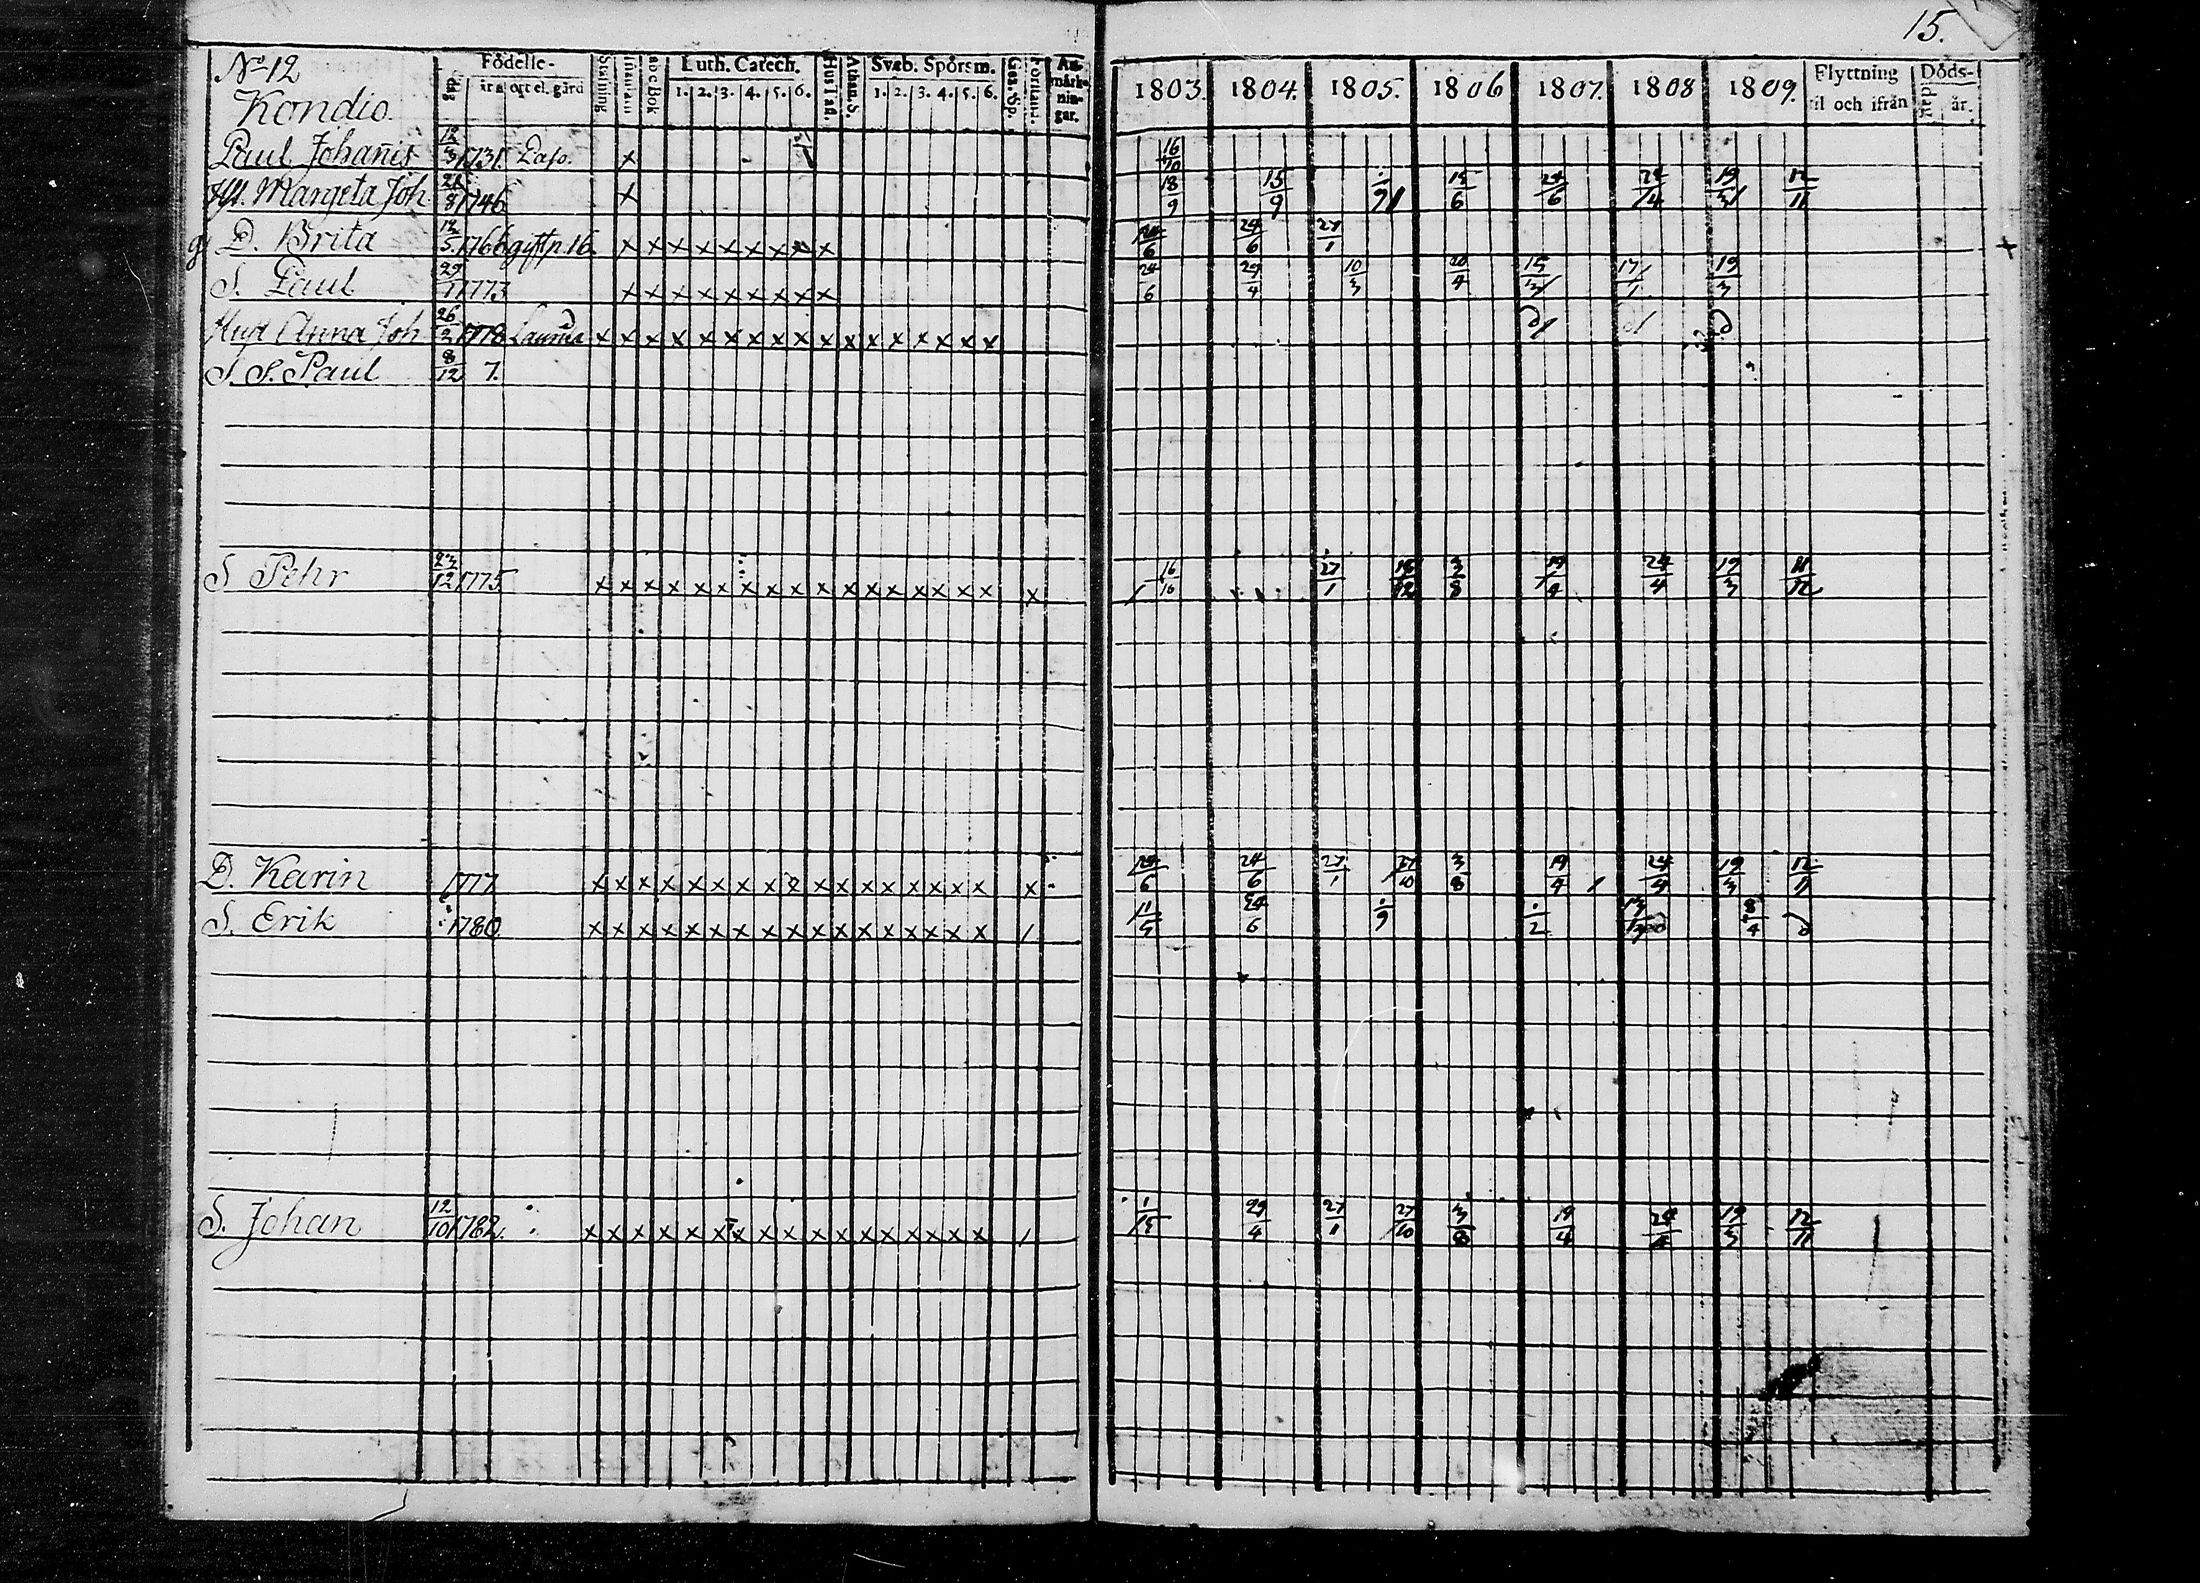 15.
No 12 Födelse- Stafning Innanläs abcBok Luth. Catech. Hus Tafl. Athan. S. Sveb. Spörsm. Gea. Sp. Förstånd. An- märk- nin- gar.
dag år o ort el. gård 1. 2. 3. 4. 5. 6. 1. 2. 3. 4. 5. 6.
Kondio
1803. 1804. 1805. 1806 1807. 1808 1809. Flyttning til och ifrån Döds- dag år.
Paul Johanis 12/3 1731. x 16/10
Margeta Joh 1746 x 18/9 15/9 15/6 24/6 24/4 19/3 12/11
D. Brita 1766 x x x x x x x x x 24/6 24/6 27/1
S. Paul 29/1 1773 x x x x x x x x x 24/6 29/4 10/3 20/4 15/3 17/1 19/3
Anna Joh 26/2 1778 x x x x x x x x x x x x x x x x x
S. S. Paul 8/12 7.
S Pehr 23/12 1775 x x x x x x x x x x x x x x x x x x 16/10 27/1 3/8 19/4 24/4 19/3
D. Karin 1777 x x x x x x x x x x x x x x x x x x 24/6 24/6 27/1 27/10 3/8 19/4 24/4 19/3 12/11
S. Erik 1780 x x x x x x x x x x x x x x x x x 24/6
S. Johan 12/10 1782. x x x x x x x x x x x x x x x x x 29/4 27/1 27/10 3/8 19/4 24/4 19/3 12/11